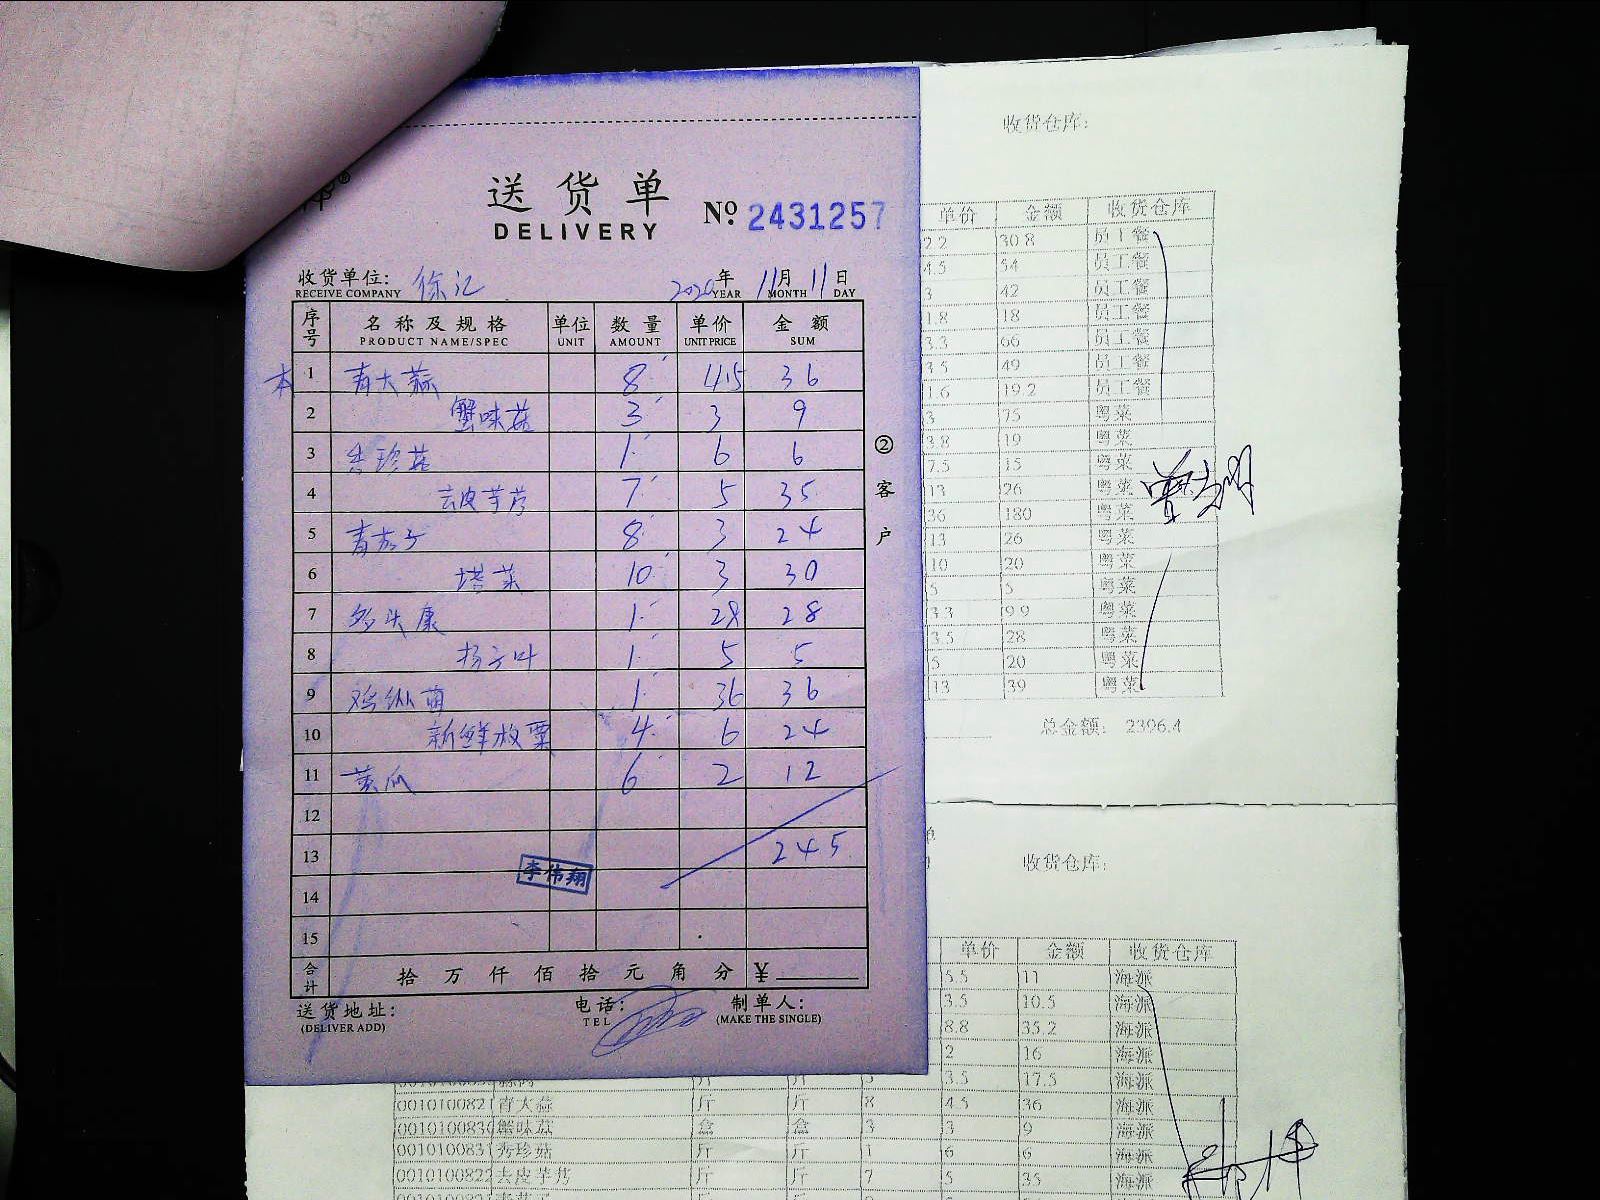 送货单
DELIVERY
№ 2431257
收货单位: 徐汇 2020年 11月 11日
RECEIVE COMPANY YEAR MONTH DAY
序号 名称及规格 单位 数量 单价 金额
PRODUCT NAME/SPEC UNIT AMOUNT UNIT PRICE SUM
本 1 青大蒜 8 4.5 36
2 蟹味菇 3 3 9
3 秀珍菇 1 6 6
4 去皮芋艿 7 5 35
5 青茄子 8 3 24
6 塔菜 10 3 30
7 1 28 28
8 1 5 5
9 鸡纵菌 1 36 36
10 新鲜板栗 4 6 24
11 黄瓜 6 2 12
12
13 245
李伟翔
14
15
合计 拾 万 仟 佰 拾 元 角 分 ¥
送货地址: 电话: 制单人:
(DELIVER ADD) TEL (MAKE THE SINGLE)
②客户
收货仓库:
单价 金额 收货仓库
2.2 30.8 员工餐
4.5 54 员工餐
3 42 员工餐
1.8 18 员工餐
3.3 66 员工餐
3.5 49 员工餐
1.6 19.2 员工餐
3 75 粤菜
3.8 19 粤菜
7.5 15 粤菜
13 26 粤菜
36 180 粤菜
13 26 粤菜
10 20 粤菜
5 5 粤菜
3.3 9.9 粤菜
3.5 28 粤菜
5 20 粤菜
13 39 粤菜
总金额: 2396.4
单
收货仓库:
单价 金额 收货仓库
5.5 11 海派
3.5 10.5 海派
8.8 35.2 海派
2 16 海派
3.5 17.5 海派
001010082 青大蒜 斤 斤 8 4.5 36 海派
001010083 蟹味菇 盒 盒 3 3 9 海派
001010083 秀珍菇 斤 斤 1 6 6 海派
001010082 去皮芋艿 斤 斤 7 5 35 海派